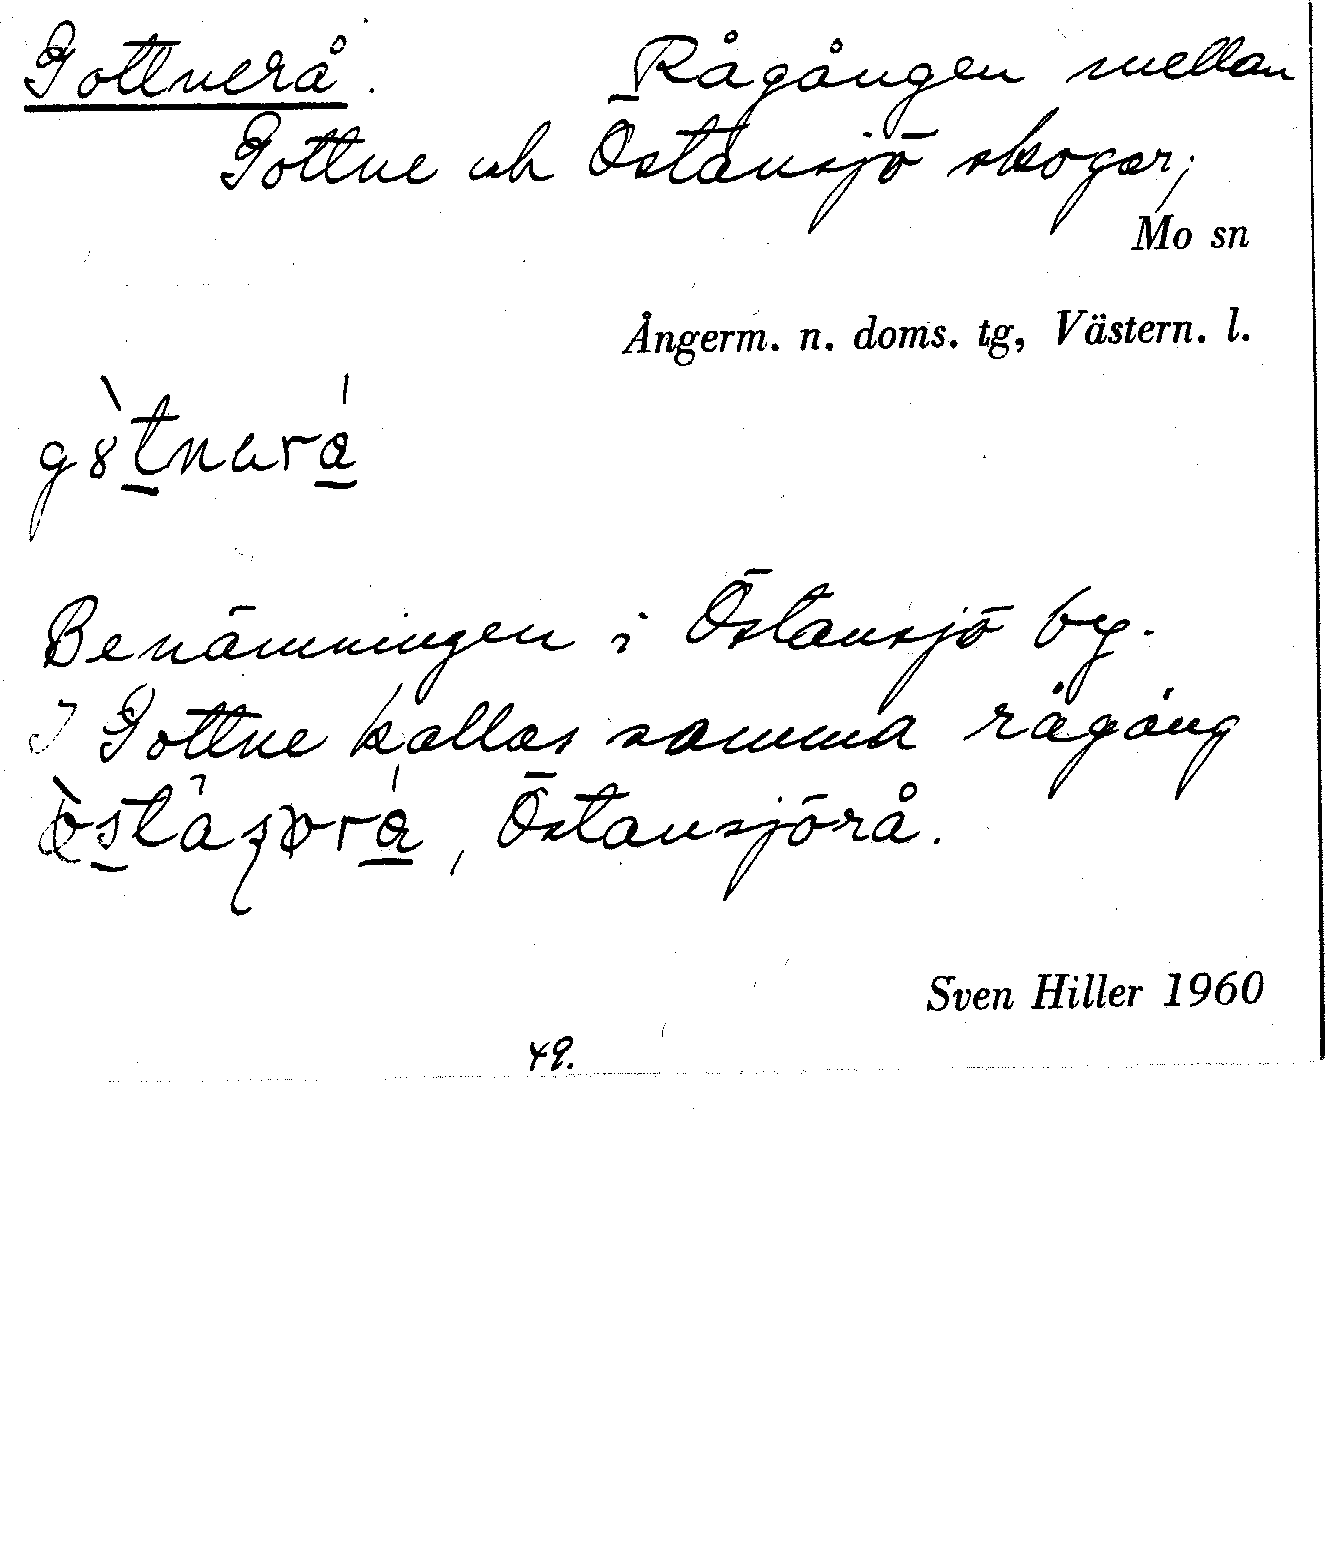 Gottnerå. Rågången mellan
Gottne och Östansjö skogar;
Mo sn
Ångerm. n. doms. tg, Västern. l.
Benämningen i Östansjö by.
I Gottne kallas samma rågång
, Östansjörå.
Sven Hiller 1960
49.